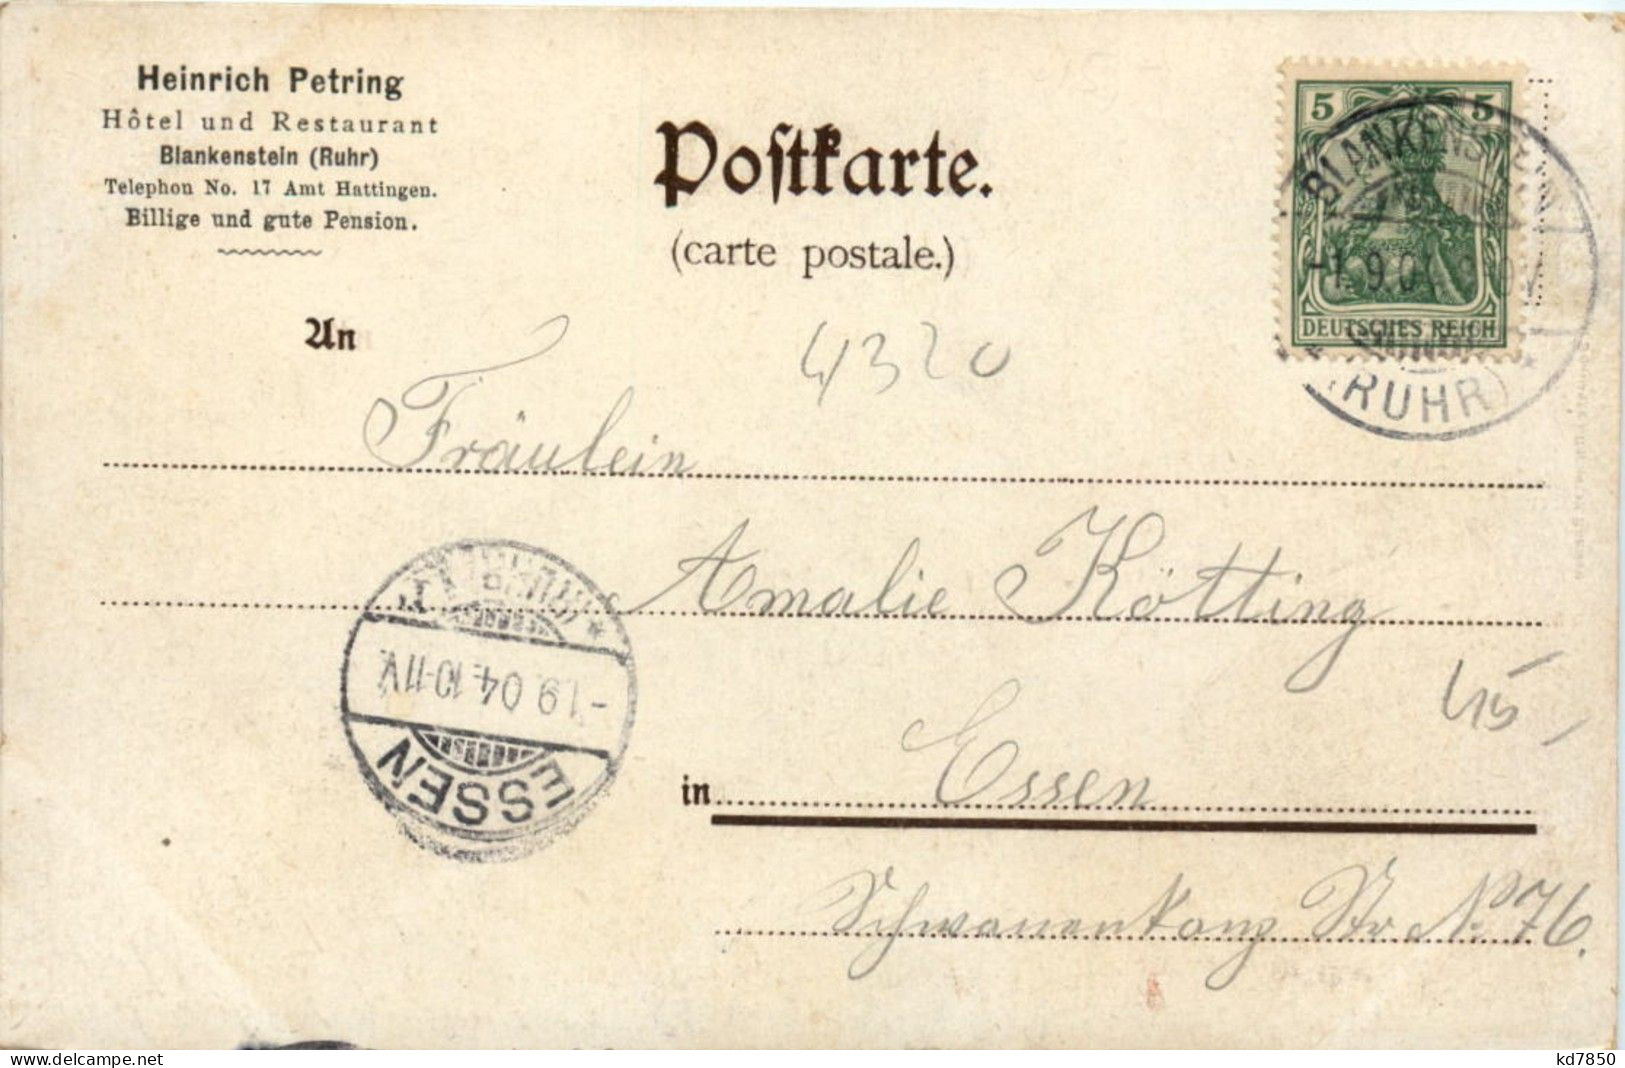 Heinrich Petring
Hôtel und Restaurant
Blankenstein (Ruhr)
Telephon No. 17 Amt Hattingen.
Billige und gute Pension.
Poſtkarte.
(carte postale.)
5 5
DEUTSCHES REICH
BLANKENSTEIN
-1.9.0
(RUHR)
An
4320
Fräulein
Amalie Kötting
-1.9.04.10-11V.
ESSEN
45
in Essen
Str No 76.
www.delcampe.net
kd7850